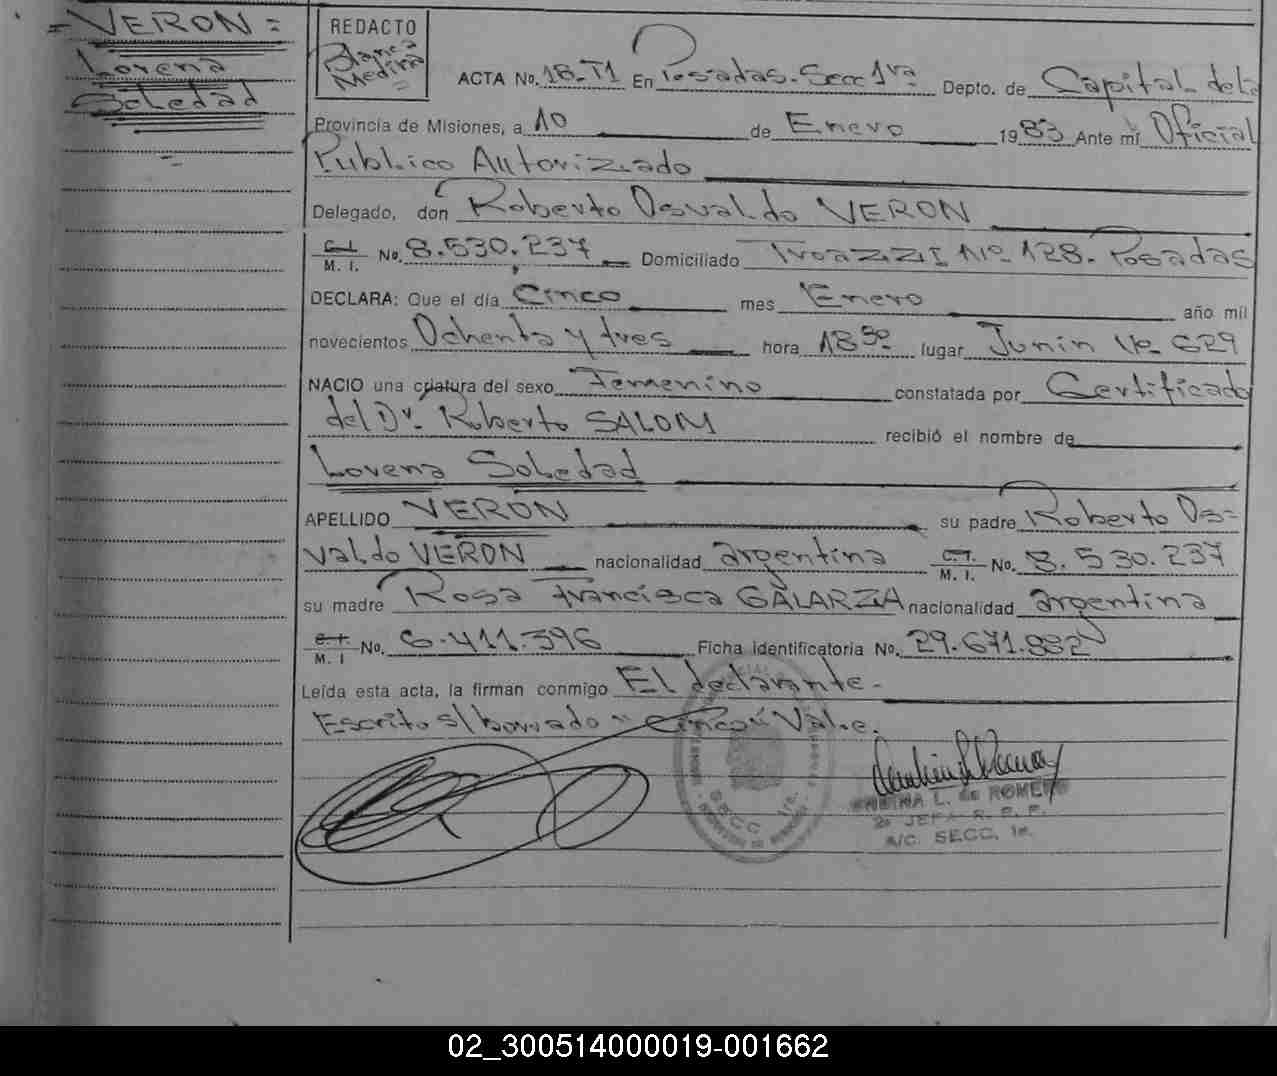 = VERON =
Lorena
Soledad
=
REDACTO
Blanca
Medina
=
ACTA No. 18-T1 En Posadas-Secc 1ra Depto. de Capital de la
Provincia de Misiones, a 10 de Enero 1983 Ante mí Oficial
Publico Autorizado
Delegado, don Roberto Osvaldo VERON
C.I.
M. I. No. 8.530.237 Domiciliado Nº 128. Posadas
DECLARA: Que el día Cinco mes Enero año mil
novecientos Ochenta y tres hora 18 30 lugar Junin Nº 629
NACIO una criatura del sexo Femenino constatada por Certificado
del Dr. Roberto SALOM recibió el nombre de
Lorena Soledad
APELLIDO VERON su padre Roberto Os=
valdo VERON nacionalidad argentina C.I.
M. I. No. 8.530.237
su madre Rosa Francisca GALARZA nacionalidad argentina
C.I.
M. I No. 6.411.396 Ficha identificatoria No. 29.671.982
Leída esta acta, la firman conmigo El declarante.-
Escrito s/borrado "cinco" Vale.
SECC 1a.
L. de ROMERO
2a JEFA R. P. P.
A/C. SECC. 1a.
02_300514000019-001662